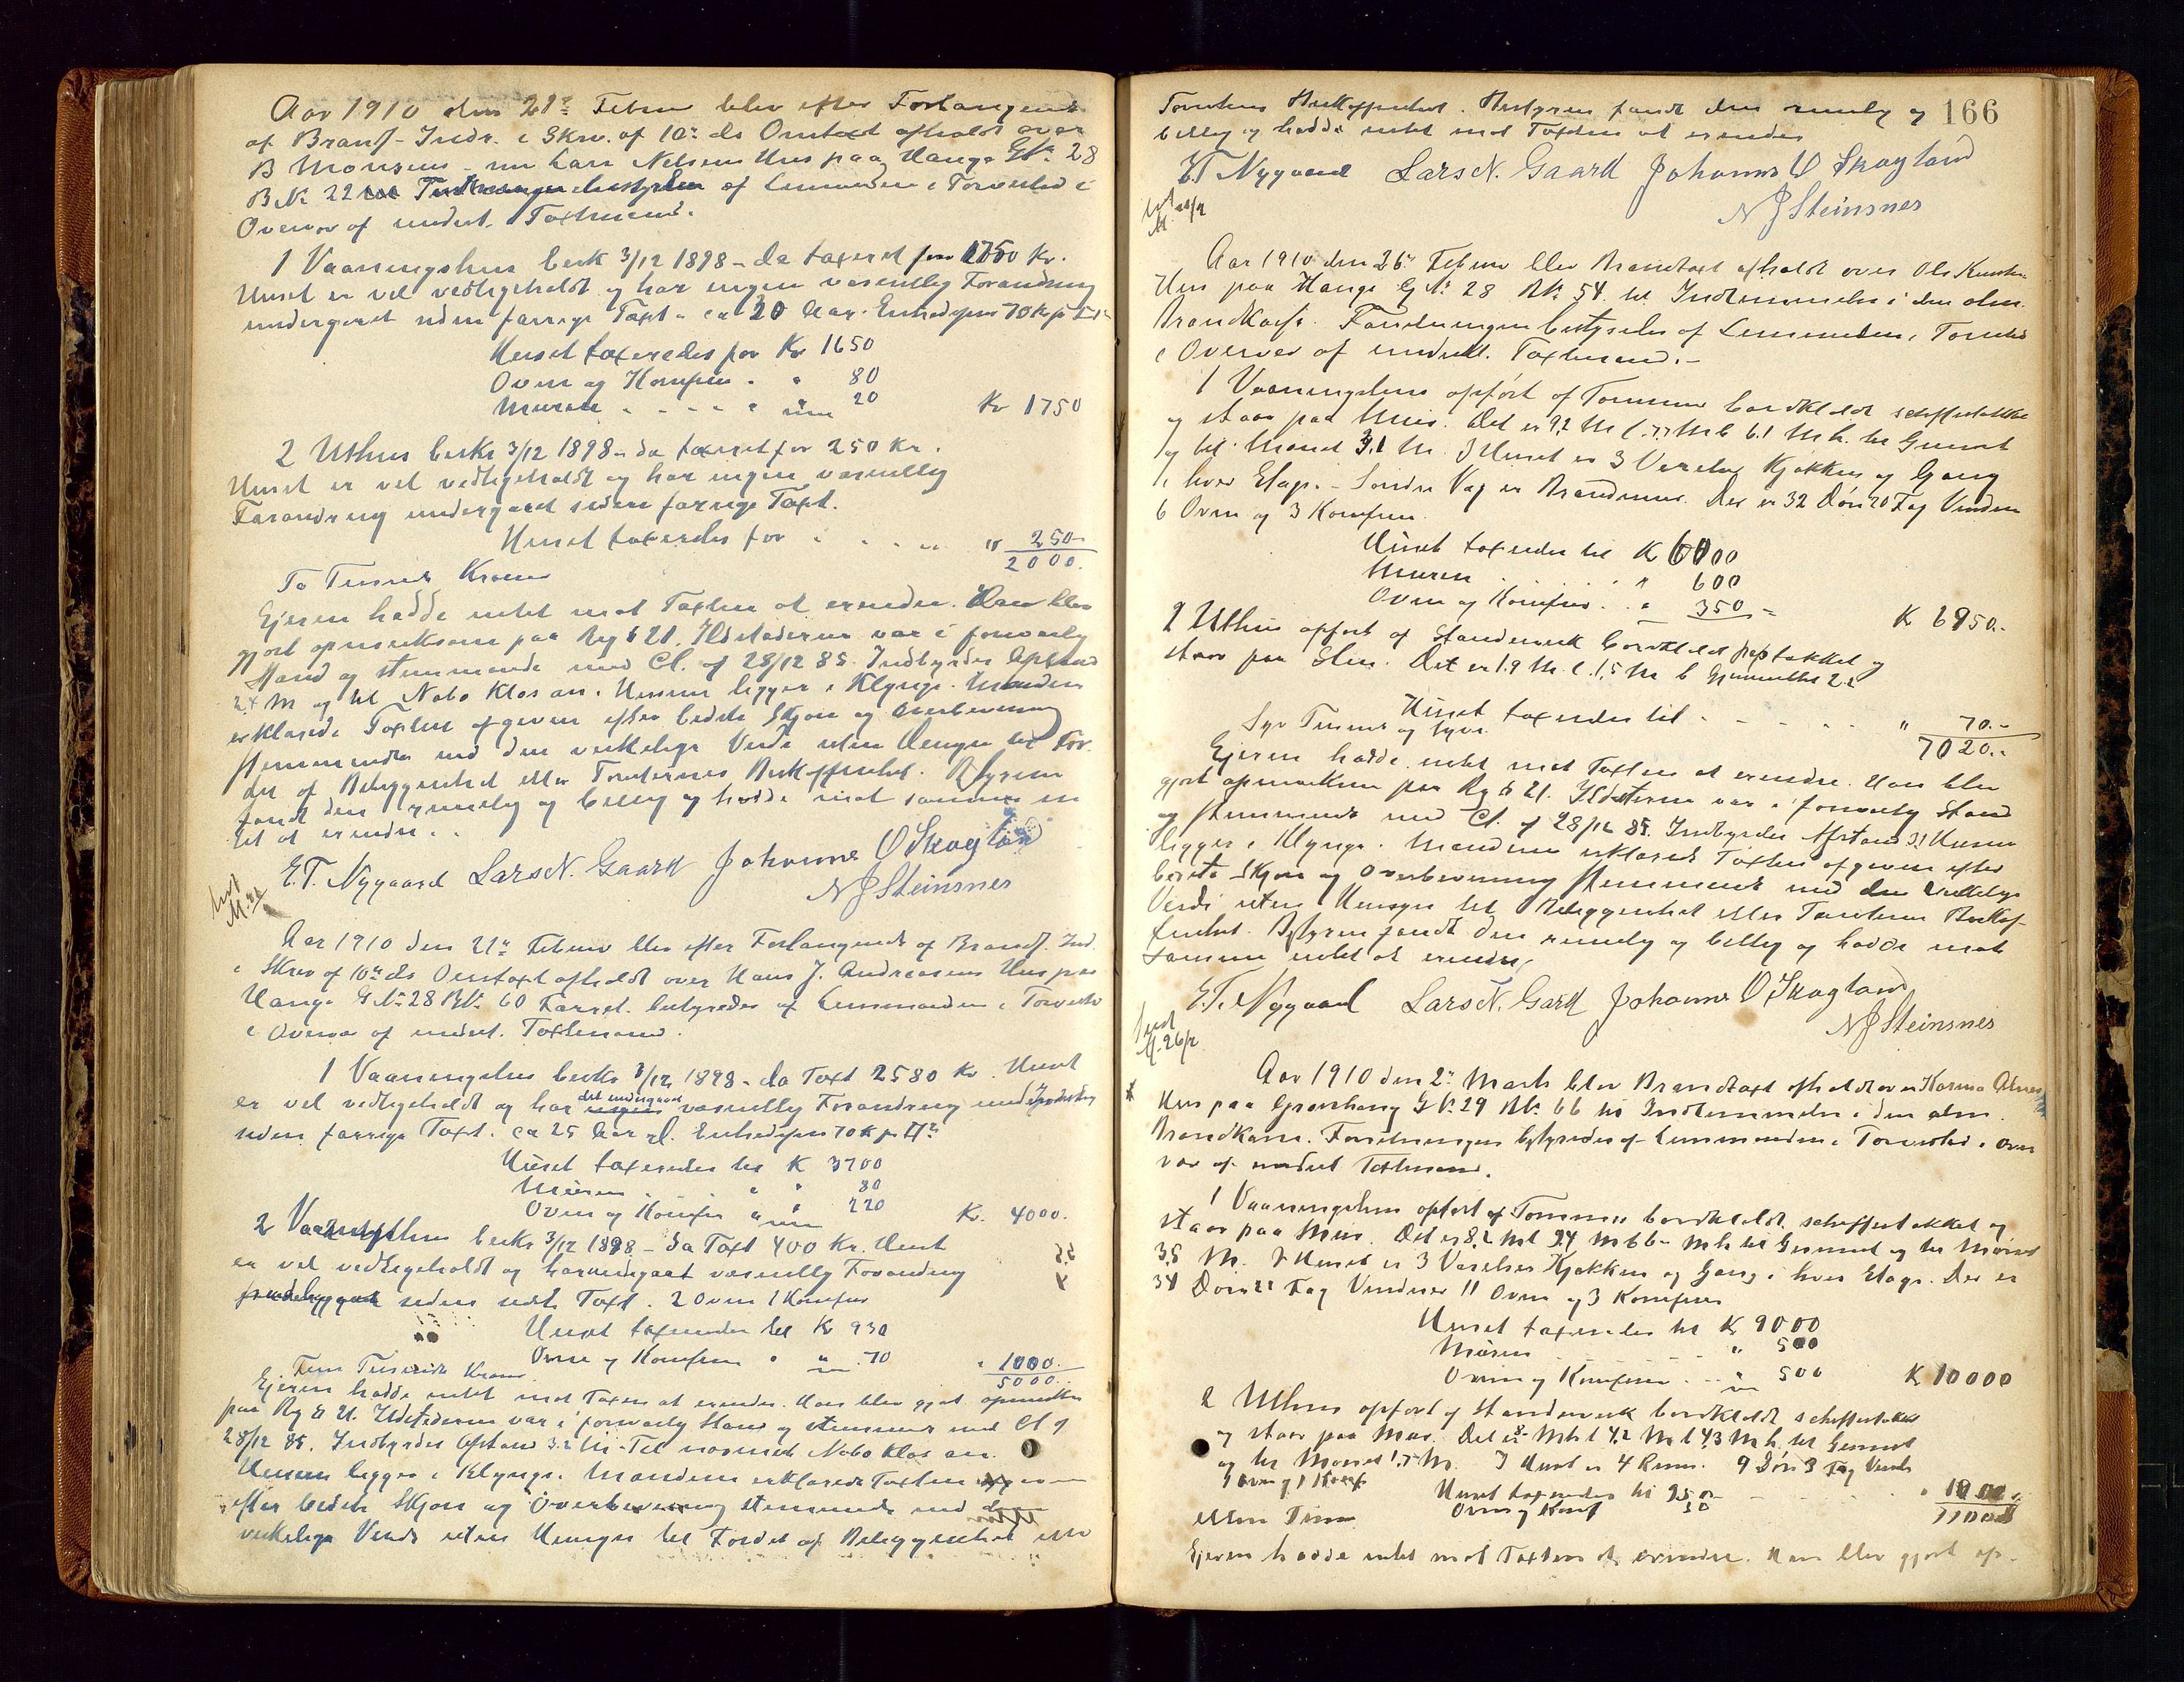 Aar 1910 den 21de Februar blev efter Forlangende
af Brandf. Indr. i Skriv. af 10de ds Omtaxt afholdt over
B Monsens nu Lars Nilsens Hus paa Hauge GNo 28
BNo 22 af Lensmanden i Torvestad i
Overvær af undert. Taxtmænd.
1 Vaaningshus besk 3/12 1898 - da taxeret for 1750 Kr.
Huset er vel vedligeholdt og har ingen væsentlig Forandring
undergaaet siden forrige Taxt. ca 20 Aar. Enhedspris 70 Kr pr
Huset taxeredes for Kr 1650
Ovn og Komfur " 80
Muren " 20 Kr 1750
2 Uthus beskr 3/12 1898 - da taxeret for 250 Kr.
Huset er vel vedligeholdt og har ingen væsentlig
Forandring undergaaet siden forrige Taxt.
Huset taxeredes for " 250
To Tusinde Kroner 2000.
Ejeren hadde intet mot Taxten at erindre. Han blev
gjort opmerksom paa Rg § 21. Ildstederne var i forsvarlig
Stand og stemmende med Cl. af 28/12 85. Indbyrdes Afstand
2.4 M og til Nabo Klos an. Husene ligger i Klynge. Mændene
erklærede Taxten afgiven efter bedste Skjøn og Overbevisning
stemmende med den virkelige Verdi uten Hensyn til For-
del af Beliggenhet eller Tomternes Beskaffenhet. Bestyreren
fandt den rimelig og billig og hadde mot samme in
tet at erindre.
E.T. Nygaard Lars N. Gaard Johannes O Skogland
N J Steinsnes
Aar 1910 den 21de Februar blev efter Forlangende af Brandf. Ind.
i Skriv af 10de ds Omtaxt afholdt over Hans J. Andreasens Hus paa
Hauge GNo 28 BNo 60 Forret. bestyredes af Lensmanden i Torvestad
i Overvær af undert. Taxtmænd.
1 Vaaningshus beskr 3/12 1898 - da Taxt 2580 Kr. Huset
er vel vedligeholdt og har det undergaaet væsentlig Forandring
siden forrige Taxt. ca 25 Aar gl. Enhedspris 70 Kr pr
Huset taxeredes til K 3700
Muren " " 80
Ovn og Komfur " " 220 Kr. 4000.
2 beskr 3/12 1898 - da Taxt 400 Kr. Huset
er vel vedligeholdt og har undergaat væsentlig Forandring
siden sidste Taxt. 2 Ovn 1 Komfur
Huset taxeredes til Kr 930
Ovne og Komfur " " 70 " 1000.
Fem Tusinde Kroner 5000.
Ejeren hadde intet mot Taxten at erindre. Han blev gjort opmerks
paa Rg § 21. Ildstederne var i forsvarlig Stand og stemmende med Cl af
28/12 85. Indbyrdes Afstand 3.2 M. Til nærmeste Nabo Klos an.
Husene ligger i Klynge. Mændene erklærede Taxten
efter bedste Skjøn og Overbevisning stemmende med den
virkelige Verdi uten Hensyn til Fordel af Beliggenhet eller
166
Tomtens Beskaffenhet. Bestyreren fandt den rimelig og
billig og hadde intet mot Taxten at erindre
E.T. Nygaard Lars N. Gaard Johannes O Skogland
N J Steinsnes
Aar 1910 den 26de Februar blev Brandtaxt afholdt over Ole Knuts
Hus paa Hauge GNo 28 BNo 54 til Indlemmelse i den alm.
Brandkasse. Forretningen bestyredes af Lensmanden i Torvestad
i Overvær af undert. Taxtmænd.-
1 Vaaningshus opført af Tømmer bordklædt skiffertækket
og staar paa Mur. Det er 9.2 M l. 7.7 M b 6.1 M h. til Gesimst
og til Mønet 3.1 M. I Huset er 3 Værelser Kjøkken og Gang
i hver Etage. - Søndre Væg er Brandmur. Der er 32 Døre 20 Fag Vinduer
6 Ovne og 3 Komfurer.
Huset taxeredes til K 6000
Muren " 600
Ovne og Komfur " 350 - K 6950.-
2 Uthus opført af Standerverk bordklædt paptækket og
staar paa Sten. Det er 1.9 M l. 1.5 M b Gjennemsn. 2.2
Huset taxeredes til " 70.-
Syv Tusinde og tyve. 7020.-
Ejeren hadde intet mot Taxten at erindre. Han blev
gjort opmerksom paa Rg § 21. Ildstederne var i forsvarlig Stand
og stemmende med Cl. af 28/12 85. Indbyrdes Afstand 3.1 Husene
ligger i Klynge. Mændene erklærede Taxten afgiven efter
bedste Skjøn og Overbevisning stemmende med den virkelige
Verdi uten Hensyn til Beliggenhet eller Tomtens Beskaf-
fenhet. Bestyreren fandt den rimelig og billig og hadde mot
samme intet at erindre.
E.T. Nygaard Lars N. Gard Johannes O Skogland
N J Steinsnes
Aar 1910 den 2de Marts blev Brandtaxt afholdt over
Hus paa Grønhaug GNo 29 BNo 66 til Indlemmelse i den alm.
Brandkasse. Forretningen bestyredes af Lensmanden i Torvestad i Over
vær af undert Taxtmænd.
1 Vaaningshus opført af Tømmer bordklædt, skiffertækket og
staar paa Mur. Det er 8.2 M l 9.4 M b 6 M h til Gesimst og til Mønet
3.5 M. I Huset er 3 Værelser Kjøkken og Gang i hver Etage. Der er
34 Døre 21 Fag Vinduer 11 Ovne og 3 Komfurer
Huset taxeredes til K 9000
Muren " 500
Ovne og Komfurer " 500 K 10000
2 Uthus opført af Standerverk bordklædt skiffertækket
og staar paa Mur. Det er M l 4.2 M b 4.3 M h. til Gesimst
og til Mønet 1.7 M. I Huset er 4 Rum. 9 Døre 3 Fag Vinduer
1 Ovn og 1 Komf
Huset taxeredes til 950 - " 1000.
Ovn og Komf 50
Elleve Tusen 11000
Ejeren hadde intet mot Taxten at erindre. Han blev gjort op-